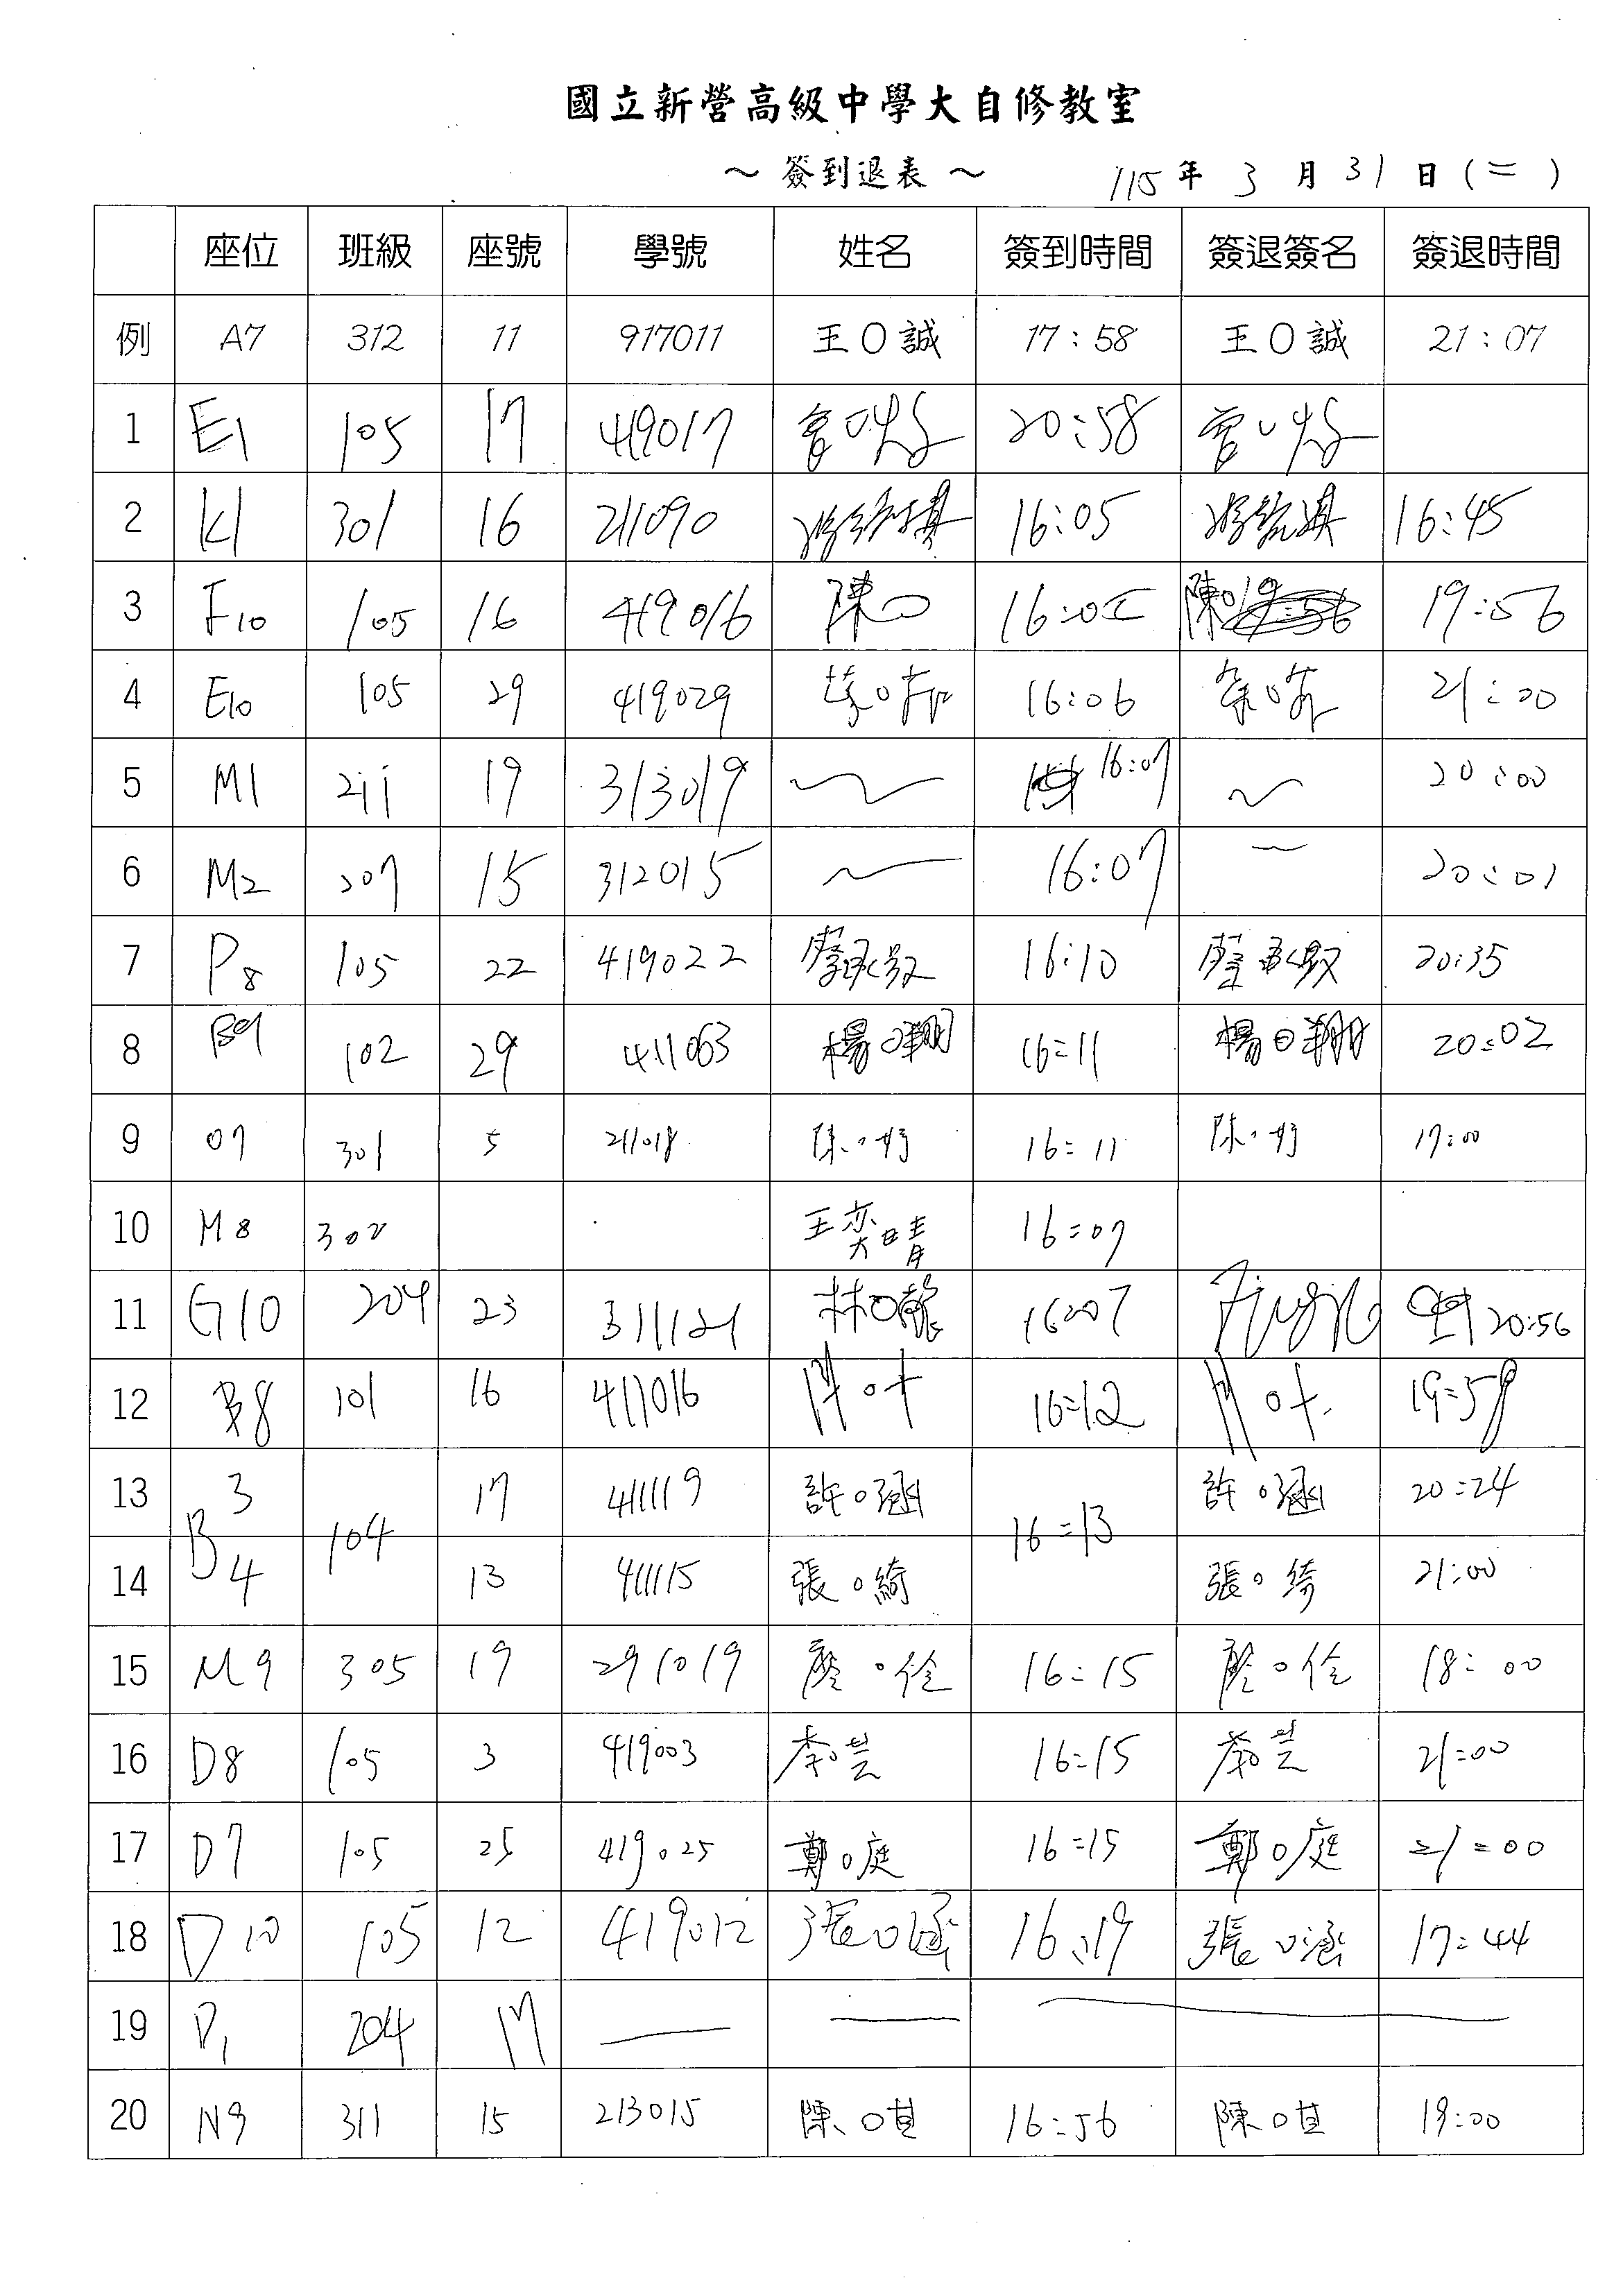 國立新營高級中學大自修教室
～ 簽到退表 ～ 115 年 3 月 31 日 (二)
座位 班級 座號 學號 姓名 簽到時間 簽退簽名 簽退時間
例 A7 312 11 917011 王〇誠 17:58 王〇誠 21:07
1 E1 105 17 419017 20:58
2 K1 301 16 211090 16:05 16:45
3 F10 105 16 419016 陳〇 16:05 陳〇 19:56
4 E10 105 29 419029 16:06 21:00
5 M1 211 19 313019 16:07 20:00
6 M2 207 15 312015 16:07 20:01
7 P8 105 22 419022 16:10 20:35
8 B9 102 29 411063 楊〇翔 16:11 楊〇翔 20:02
9 O7 301 5 211018 陳〇妤 16:11 陳〇妤 17:00
10 M8 302 王奕晴 16:07
11 G10 204 23 311121 林〇 16:07 20:56
12 B8 101 16 411016 16:12 19:59
13 B3 104 17 411119 許〇涵 16:13 許〇涵 20:24
14 B4 13 411115 張〇綺 張〇綺 21:00
15 M9 305 19 291019 廖〇佺 16:15 廖〇佺 18:00
16 D8 105 3 419003 李〇芸 16:15 李〇芸 21:00
17 D7 105 25 419025 鄭〇庭 16:15 鄭〇庭 21:00
18 D10 105 12 419012 張〇涵 16:19 張〇涵 17:44
19 D1 204 17
20 N9 311 15 213015 陳〇萁 16:56 陳〇萁 19:00